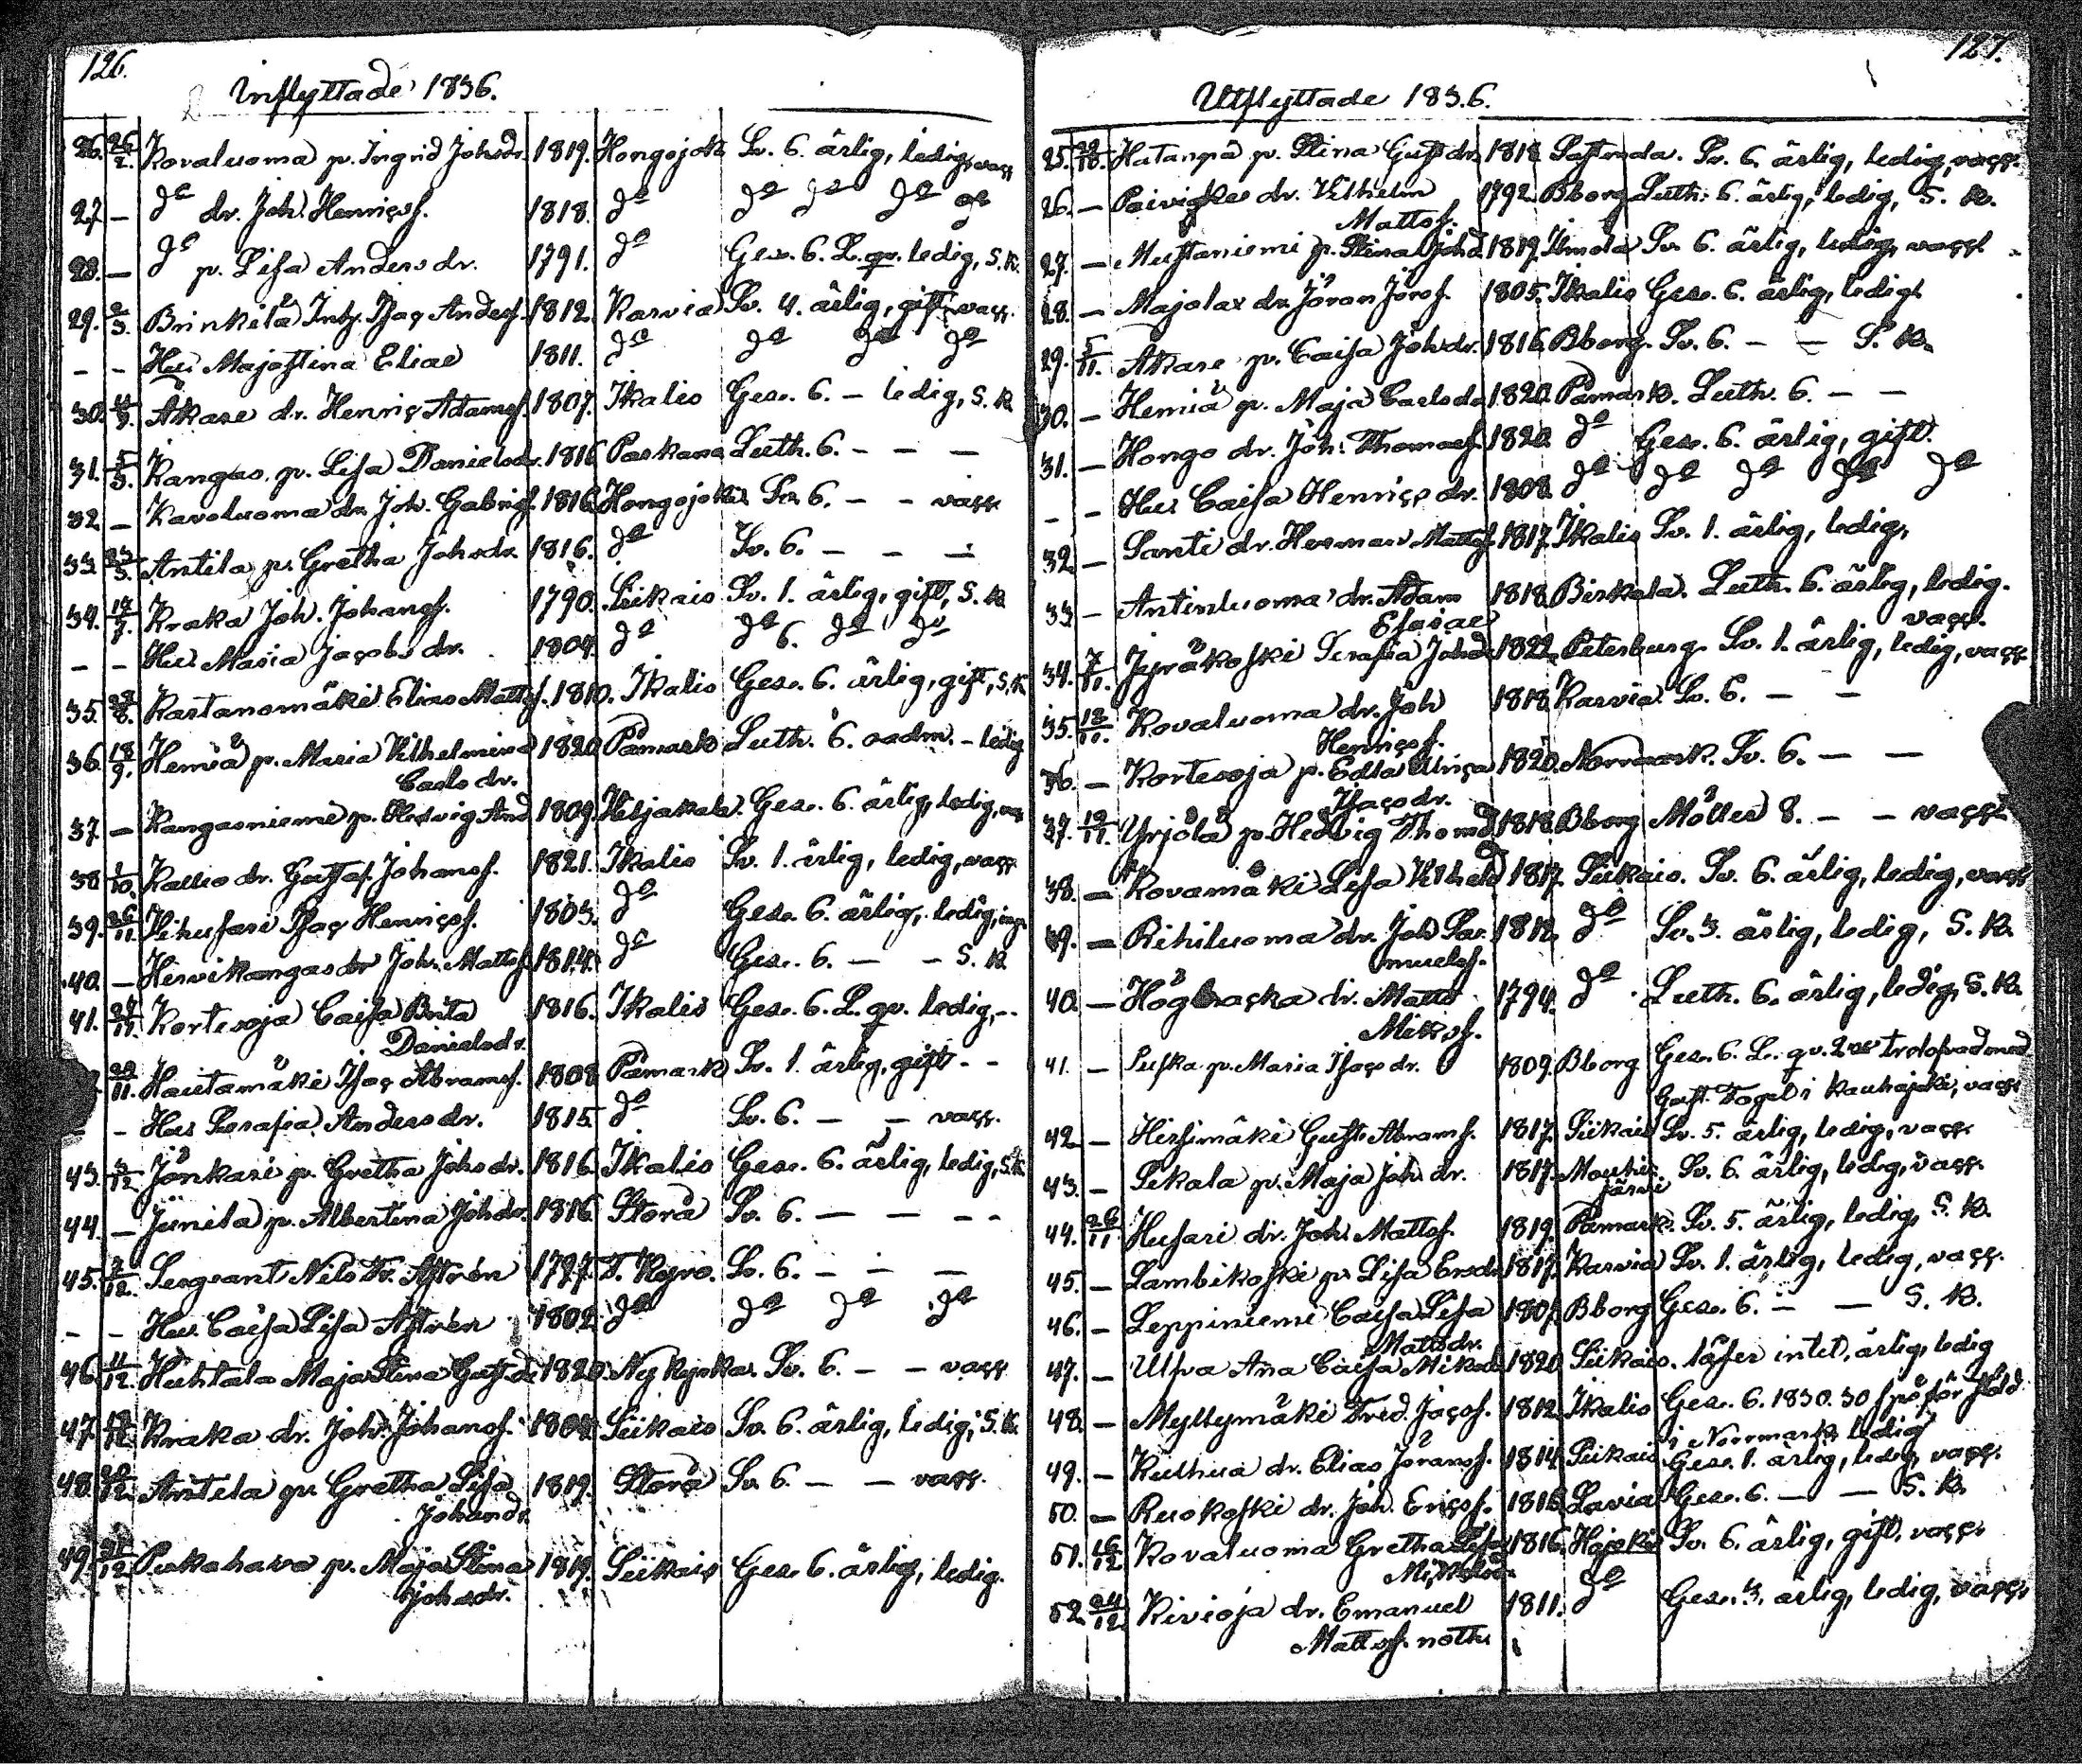 126.
Inflyttade 1836.
26. 26/2. Kovaluoma p. Ingrid Johsdr. 1819. Hongojoki Sv. 6. ärlig, ledig, vacc.
27. — do dr. Joh. Henricss. 1818. do do do do do
28. — do p. Lisa Anders dr. 1791. do Ges. 6. L. qv. ledig, S. K.
29. 2/3. Brinkilä Inh. Isac Anderss. 1812. Karvia Sv. 4. ärlig, gift, vacc.
- - Hus. Majastina Eliae 1811. do do do do
30. Åkare dr. Henric Adamss. 1807. Ikalis Ges. 6. - ledig, S. K.
31. 5/5. Kangas p. Lisa Danielsdr. 1816. Paskana Luth. 6. - - -
32. — Kavoluoma dr. Joh. Gabrielss. 1816. Hongojoki Sv. 6. - - vacc.
33. Antila p. Gretha Johsdr. 1816. do Sv. 6. - - -
34. Kraka Joh. Johanss. 1790. Siikais Sv. 1. ärlig, gift, S. K.
- - Hus. Maria Jacobs dr. 1804. do do 6. do do
35. Rastanomäki Elias Mattss. 1810. Ikalis Ges. 6. ärlig, gift, S. K.
36. 18/9. Hemiä p. Maria Wilhelmina 1820 Påmark Luth. 6. oadm. - ledig
Carls dr.
37. — Kangasniemi p. Hedvig And. 1809. Ges. 6. ärlig, ledig,
38. 1/10. Kallio dr. Gustaf Johanss. 1821. Ikalis Sv. 1. ärlig, ledig, vacc.
39. 26/11. Pihusari Isac Henricss. 1803. do Ges. 6. ärlig, ledig,
40. — Hirvikangas dr. Joh. Mattss. 1814. do Ges. 6. - - S. K.
41. 27/11. Kortesoja Caisa Brita 1816. Ikalis Ges. 6. L. qv. ledig, - -
Danielsdr.
29/11. Hautamäki Isac Abramss. 1808. Påmark Sv. 1. ärlig, gift - -
- Hus. Serafia Anders dr. 1815. do Sv. 6. - - vacc.
43. 3/12. Jönkäri p. Gretha Johs dr. 1816. Ikalis Ges. 6. ärlig, ledig, S. K.
44. — Junila p. Albertina Johdr. 1816. Storå Sv. 6. - - - -
45. 7/12. Sergeant Nils Fr. Aström 1797. T. Kyro. Sv. 6. - - -
- - Hus. Caisa Lisa Aström 1802. do do do do
46. 11/12. Huhtala Maja Stina Gust.dr 1820. Ny Kyrka. Sv. 6. - - vacc.
47. Kraka dr. Joh. Johanss. 1804. Siikais Sv. 6. ärlig, ledig, S. K.
48. Antila p. Gretha Lisa 1819. Storå Sv. 6. - - vacc.
Johansdr.
49. 31/12. Pukahava p. Maja Stina 1819. Siikais Ges. 6. ärlig, ledig.
Johsdr.
127.
Utflyttade 1836.
25. 29/10. Hatanpä p. Stina Gustdr. 1818. Sastmola. Sv. 6. ärlig, ledig, vacc.
26. — Päivickes dr. Vilhelm 1792. Bborg Luth. 6. ärlig, ledig, S. K.
Mattss.
27. — Mustaniemi p. Stina Johd. 1817. Ilmola Sv. 6. ärlig, ledig, vacc.
28. — Majalax dr. Jöran Jörss. 1805. Ikalis Ges. 6. ärlig, ledig.
29. 5/11. Åkare p. Caisa Johsdr. 1816. Bborg. Sv. 6. - - S. K.
30. — Hemiä p. Maja Carlsdr. 1820. Påmark. Luth. 6. - -
31. — Hongo dr. Joh. Thomass. 1820. do Ges. 6. ärlig, gift.
- - Hus. Caisa Henrics dr. 1808. do do do do do
32. — Santi dr. Herman Mattss. 1817. Ikalis Sv. 1. ärlig, ledig,
33. — Antinluoma dr. Adam 1818. Birkala. Luth. 6. ärlig, ledig.
Esaiae vacc.
34. 7/11. Jyräkoski Serafia Johd. 1822. Peterburg. Sv. 1. ärlig, ledig, vacc.
35. 12/11. Kovaluoma dr. Joh 1818. Karvia. Sv. 6. - -
Henricss.
36. — Kortesoja p. Edla Ulrica 1820. Norrmark. Sv. 6. - -
Isacsdr.
37. 19/11. Yrjölä p. Hedvig Thomd. 1818. Bborg Möller 8. - - vacc.
38. — Kovamäki Lisa Vilhelm 1817. Siikais. Sv. 6. ärlig, ledig, vacc.
39. — Rihiluoma dr. Joh Sa- 1812. do Sv. 3. ärlig, ledig, S. K.
muelss.
40. — Högbacka dr. Matts 1794. do Luth. 6. ärlig, ledig, S. K.
Mikss.
41. — Suska p. Maria Isacs dr. 1809. Bborg Ges. 6. L. qv. 2 trolofvad med
Gust. Fogel i Kauhajoki, vacc.
42. — Hirsimäki Gust. Abramss. 1817. Siikais Sv. 5. ärlig, ledig, vacc.
43. — Sikala p. Maja Joh. dr. 1817. Mouhi- Sv. 6. ärlig, ledig, vacc.
järvi
44. 26/11 Husari dr. Joh. Mattss. 1819. Påmark. Sv. 5. ärlig, ledig, S. K.
45. — Lambikoski p. Lisa Ersdr. 1817. Karvia Sv. 1. ärlig, ledig, vacc.
46. — Leppiniemi Caisa Lisa 1807. Bborg Ges. 6. - - S. K.
Mattsdr.
47. — Ulfva Ana Caisa Miksdr 1820 Siikais. läser intet, ärlig, ledig
48. — Myllymäki Fred. Jacss. 1812. Ikalis Ges. 6. 1830. 30 spö för stöld
i Norrmark ledig
49. — Kulhua dr. Elias Jöranss. 1814. Siikais Ges. 1. ärlig, ledig, vacc.
50. — Ruokoski dr. Joh. Ericss. 1816. Lavia Ges. 6. - - S. K.
51. 16/12 Kovaluoma Gretha Lisa 1816. Hojoki Sv. 6. ärlig, gift, vacc.
Mickelsdr.
52. 24/12. Kivioja dr. Emanuel 1811. do Ges. 3. ärlig, ledig, vacc.
Mattss. noth.